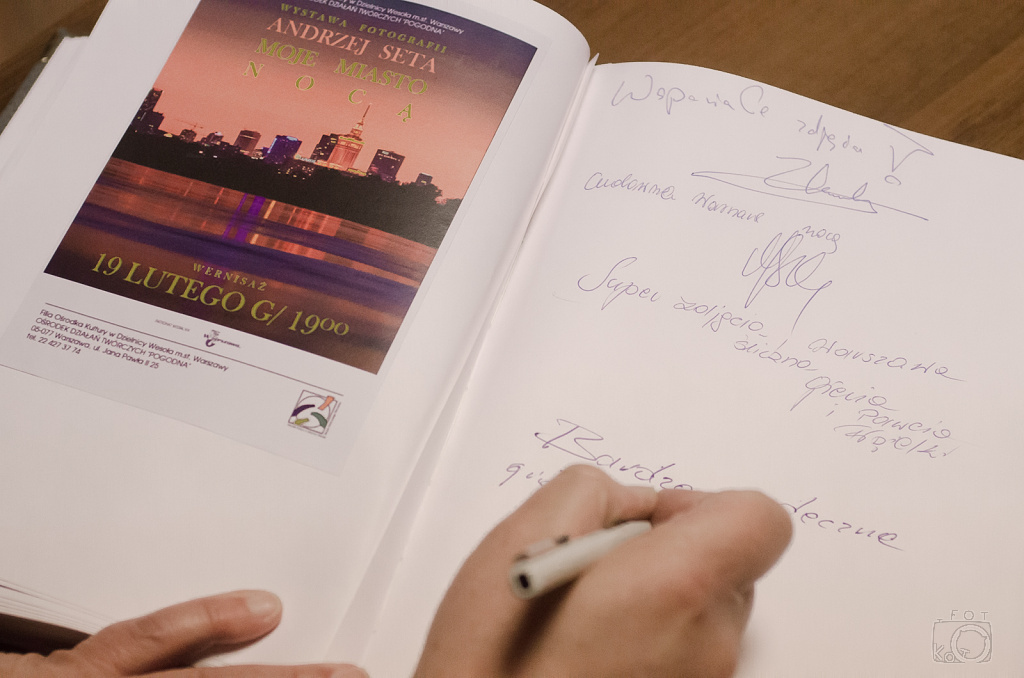 w Dzielnicy Wesoła m.st. Warszawy
OŚRODEK DZIAŁAŃ TWÓRCZYCH "POGODNA"
WYSTAWA FOTOGRAFII
ANDRZEJ SETA
MOJE MIASTO
NOCĄ
WERNISAŻ
19 LUTEGO G/ 19oo
Filia Ośrodka Kultury w Dzielnicy Wesoła m.st. Warszawy
OŚRODEK DZIAŁAŃ TWÓRCZYCH "POGODNA"
05-077 Warszawa, ul. Jana Pawła II 25
tel. 22 427 37 74
Wspaniałe zdjęcia!
Cudowna Warszawa nocą
Super zdjęcia
śliczna Warszawa
Gienia
i Pawcio
Bardzo deczne
FOT
Kot